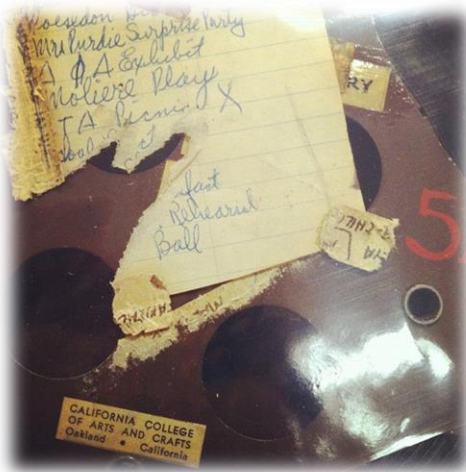 Poseidon
Mrs Purdie Surprise Party
A & A Exhibit
Moliere Plays
T A Picnic X
fast
Rehearsal
Ball
RY
5
CALIFORNIA COLLEGE
OF ARTS AND CRAFTS
Oakland • California